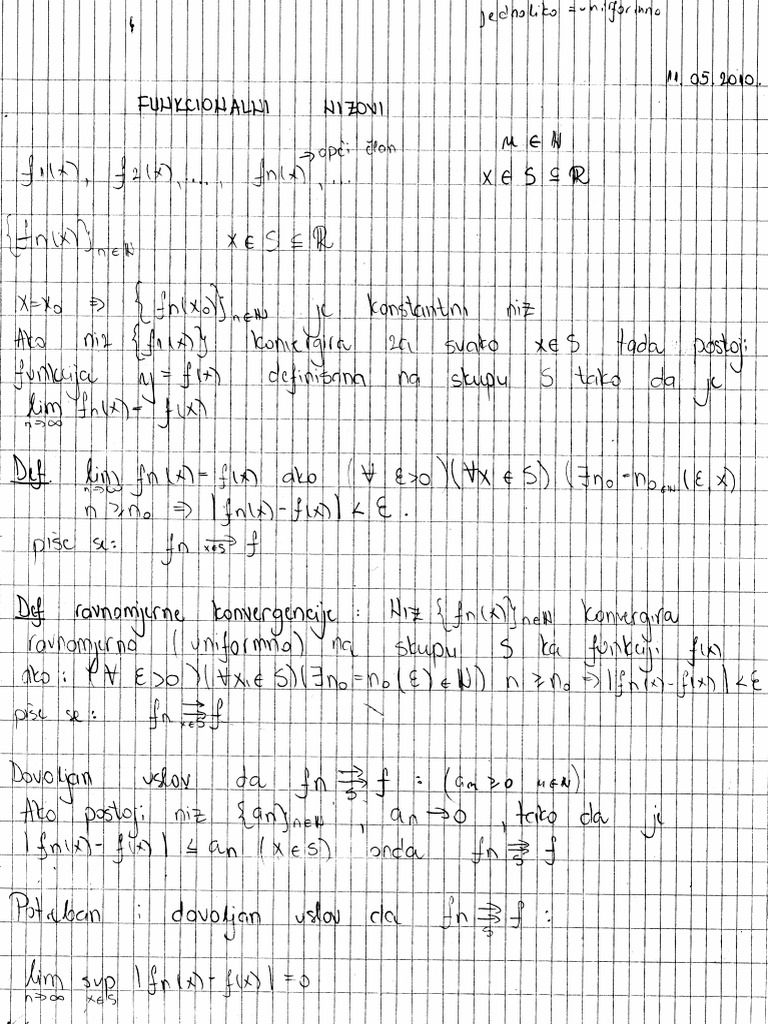 jednoliko = uniformno
11.05.2010.
FUNKCIONALNI NIZOVI
f1(x), f2(x),..., fn(x),... → opći član n ∈ N
x ∈ S ⊆ R
{fn(x)}n∈N x ∈ S ⊆ R
x=x0 ⇒ {fn(x0)}n∈N je konstantni niz
Ako niz {fn(x)} konvergira za svako x∈S tada postoji
funkcija y = f(x) definisana na skupu S tako da je
lim n→∞ fn(x) = f(x)
Def. lim n→∞ fn(x) = f(x) ako (∀ ε>0)(∀x ∈ S)(∃n0 = n0∈N(ε,x)
n ≥ n0 ⇒ |fn(x) - f(x)| < ε.
piše se: fn →x∈S f
Def ravnomjerne konvergencije : Niz {fn(x)}n∈N konvergira
ravnomjerno (uniformno) na skupu S ka funkciji f(x)
ako : (∀ ε>0)(∀x ∈ S)(∃n0 = n0(ε) ∈ N) n ≥ n0 ⇒ |fn(x) - f(x)| < ε
piše se: fn ⇉x∈S f
Dovoljan uslov da fn ⇉S f : (an ≥ 0 n∈N)
Ako postoji niz {an}n∈N, an → 0, tako da je
|fn(x) - f(x)| ≤ an (x∈S) onda fn ⇉S f
Potreban i dovoljan uslov da fn ⇉S f :
lim n→∞ sup x∈S |fn(x) - f(x)| = 0